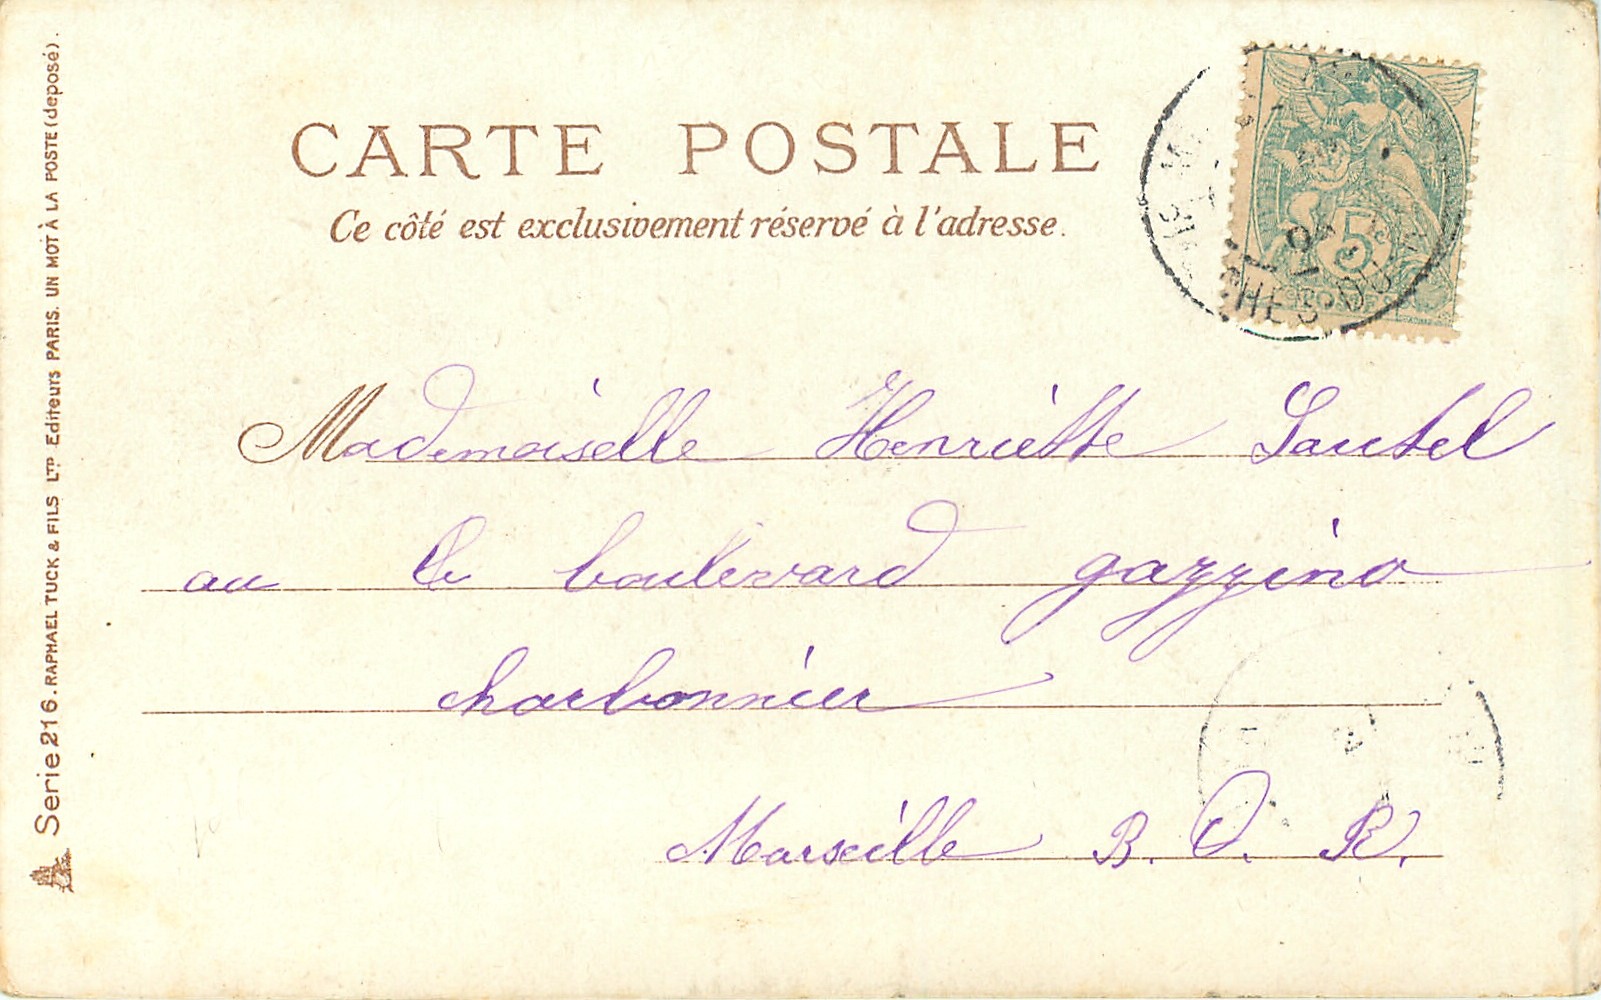 CARTE POSTALE
Ce côté est exclusivement réservé à l'adresse.
Serie 216. RAPHAEL TUCK & FILS LTD Editeurs PARIS. UN MOT À LA POSTE (deposé).
5c
HES DU
Mademoiselle Henriette Sautel
au Ce boulevard gazzino
charbonnier
Marseille B. D. R.